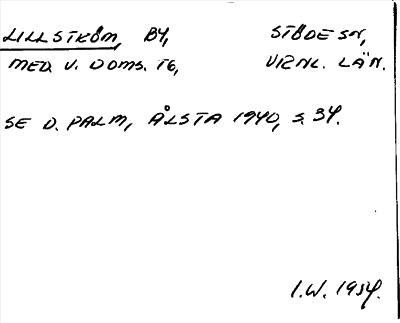 LILLSTRÖM, BY, STÖDE SN,
MED. V. DOMS. TG, VRNL. LÄN.
SE D. PALM, ÅLSTA 1940, S. 34.
I.W. 1954.